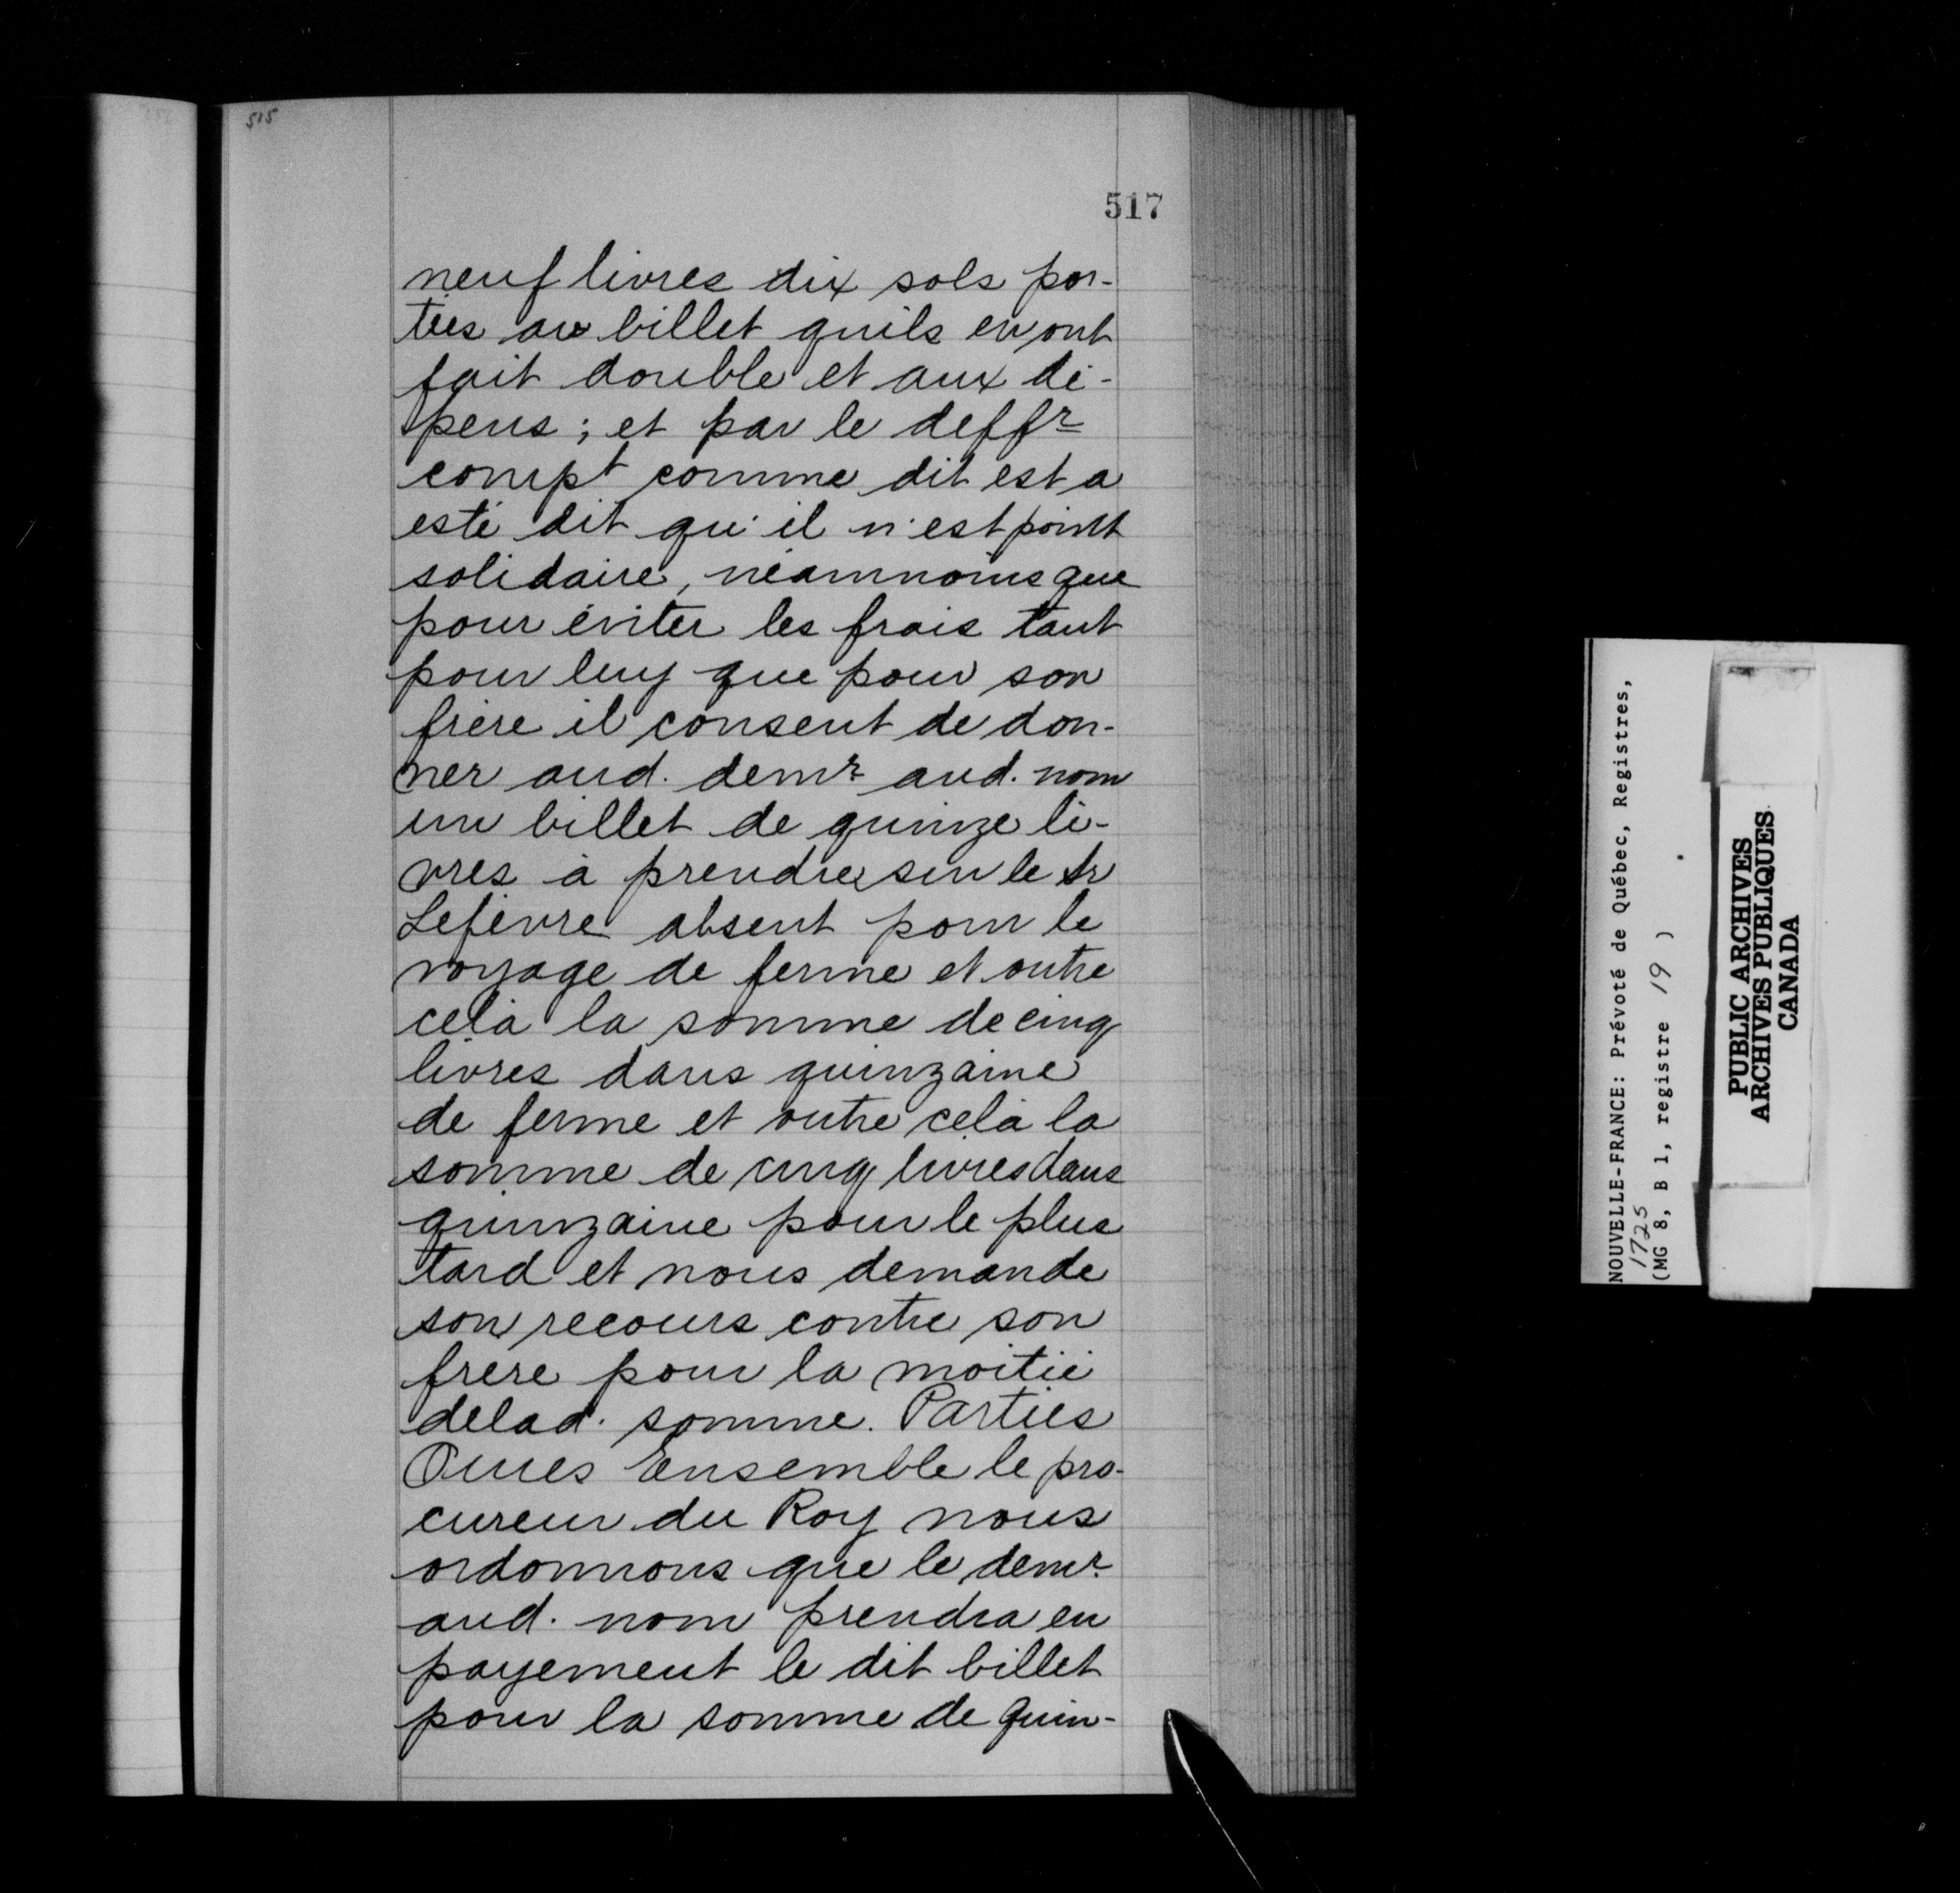 515
517
neuf livres dix sols por-
tées au billet quils en ont
fait double et aux dé-
pens ; et par le deffr
compt comme dit est a
esté dit qu'il n'est point
solidaire, néamnoins que
pour éviter les frais tant
pour luy que pour son
frère il consent de don-
ner aud. demr aud. nom
un billet de quinze li-
vres à prendre sur le Sr
Lefèvre absent pour le
voyage de ferme et outre
cela la somme de cinq
livres dans quinzaine
de ferme et outre cela la
somme de cinq livres dans
quinzaine pour le plus
tard et nous demande
son recours contre son
frere pour la moitié
delad. somme. Parties
Ouies Ensemble le pro-
cureur du Roy nous
ordonnons que le demr
aud. nom prendra en
payement le dit billet
pour la somme de quin-
NOUVELLE-FRANCE: Prévoté de Québec, Registres,
1725
(MG 8, B 1, registre 19 )
PUBLIC ARCHIVES
ARCHIVES PUBLIQUES
CANADA